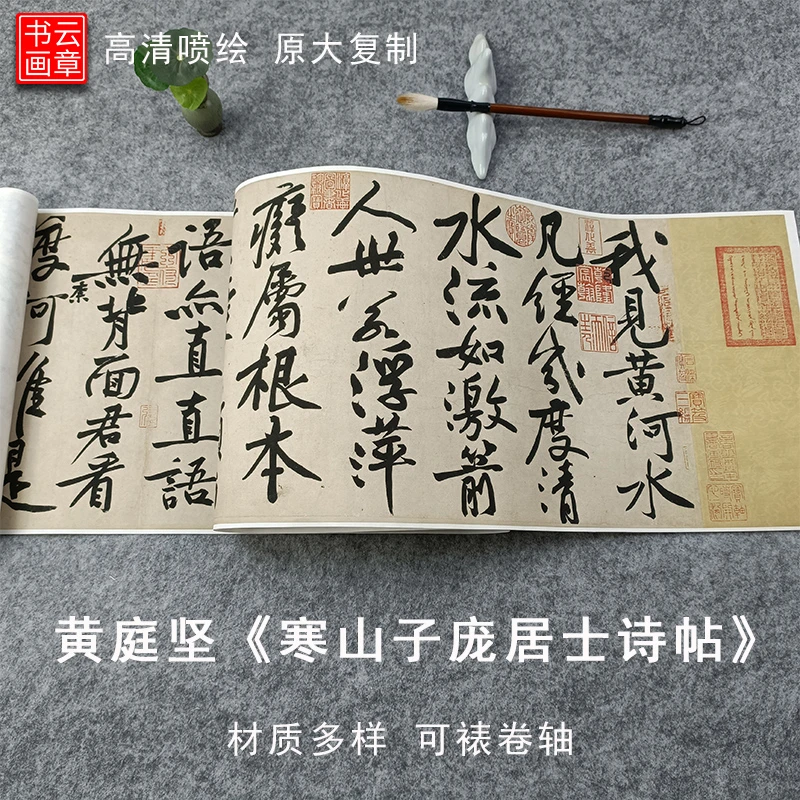 云章
书画
高清喷绘 原大复制
我見黄河水
凡經幾度清
水流如激箭
人世若浮萍
癡屬根本
語亦直直語
無背面君看
度河誰是
黄庭坚《寒山子庞居士诗帖》
材质多样 可裱卷轴